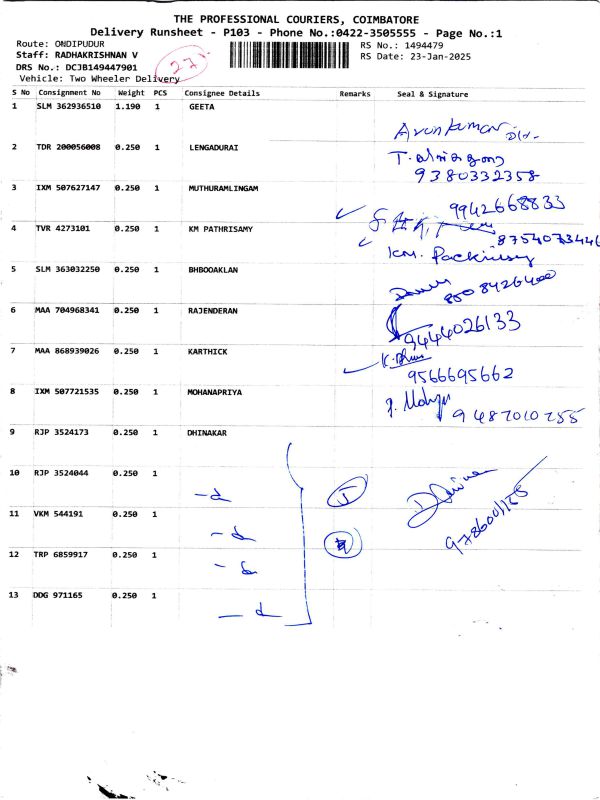 THE PROFESSIONAL COURIERS, COIMBATORE
Delivery Runsheet - P103 - Phone No.:0422-3505555 - Page No.:1
Route: ONDIPUDUR RS No.: 1494479
Staff: RADHAKRISHNAN V RS Date: 23-Jan-2025
DRS No.: DCJB149447901
Vehicle: Two Wheeler Delivery
S No Consignment No Weight PCS Consignee Details Remarks Seal & Signature
1 SLM 362936510 1.190 1 GEETA
Arunkumar
2 TDR 200056008 0.250 1 LENGADURAI
9380332358
3 IXM 507627147 0.250 1 MUTHURAMLINGAM
9942668833
4 TVR 4273101 0.250 1 KM PATHRISAMY
KM.
5 SLM 363032250 0.250 1 BHBOOAKLAN
6 MAA 704968341 0.250 1 RAJENDERAN
9444026133
7 MAA 868939026 0.250 1 KARTHICK
9566695662
8 IXM 507721535 0.250 1 MOHANAPRIYA
9487010255
9 RJP 3524173 0.250 1 DHINAKAR
10 RJP 3524044 0.250 1
11 VKM 544191 0.250 1
12 TRP 6859917 0.250 1
13 DDG 971165 0.250 1